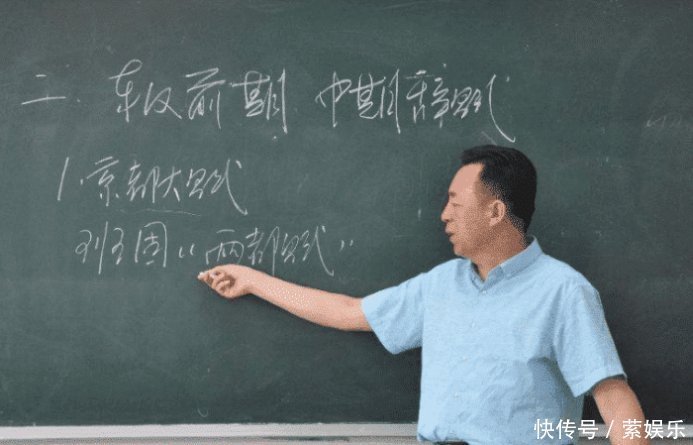 二、东汉前期、中期辞赋
1、京都大赋
班固“两都赋”
快传号/萦娱乐